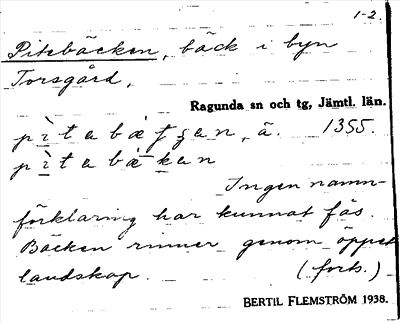 1-2.
Pitebäcken, bäck i byn
Torsgård.
Ragunda sn och tg, Jämtl. län.
ä. 1355.
Ingen namn-
förklaring har kunnat fås.
Bäcken rinner genom öppet
landskap. (forts.)
BERTIL FLEMSTRÖM 1938.